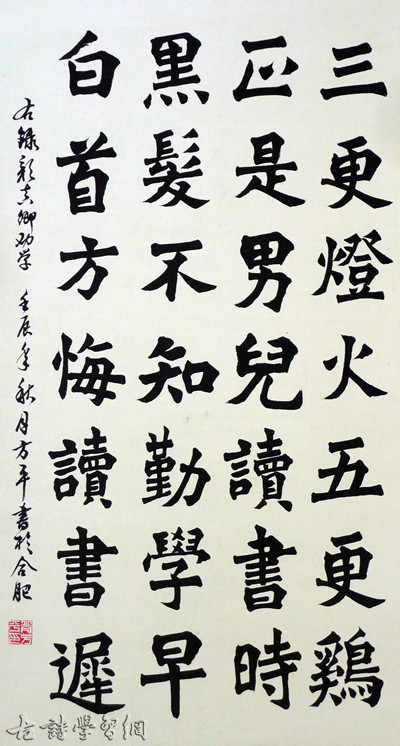 三更燈火五更鷄
正是男兒讀書時
黑髮不知勤學早
白首方悔讀書遲
右録顔真卿劝学 壬辰年秋月方平書於合肥